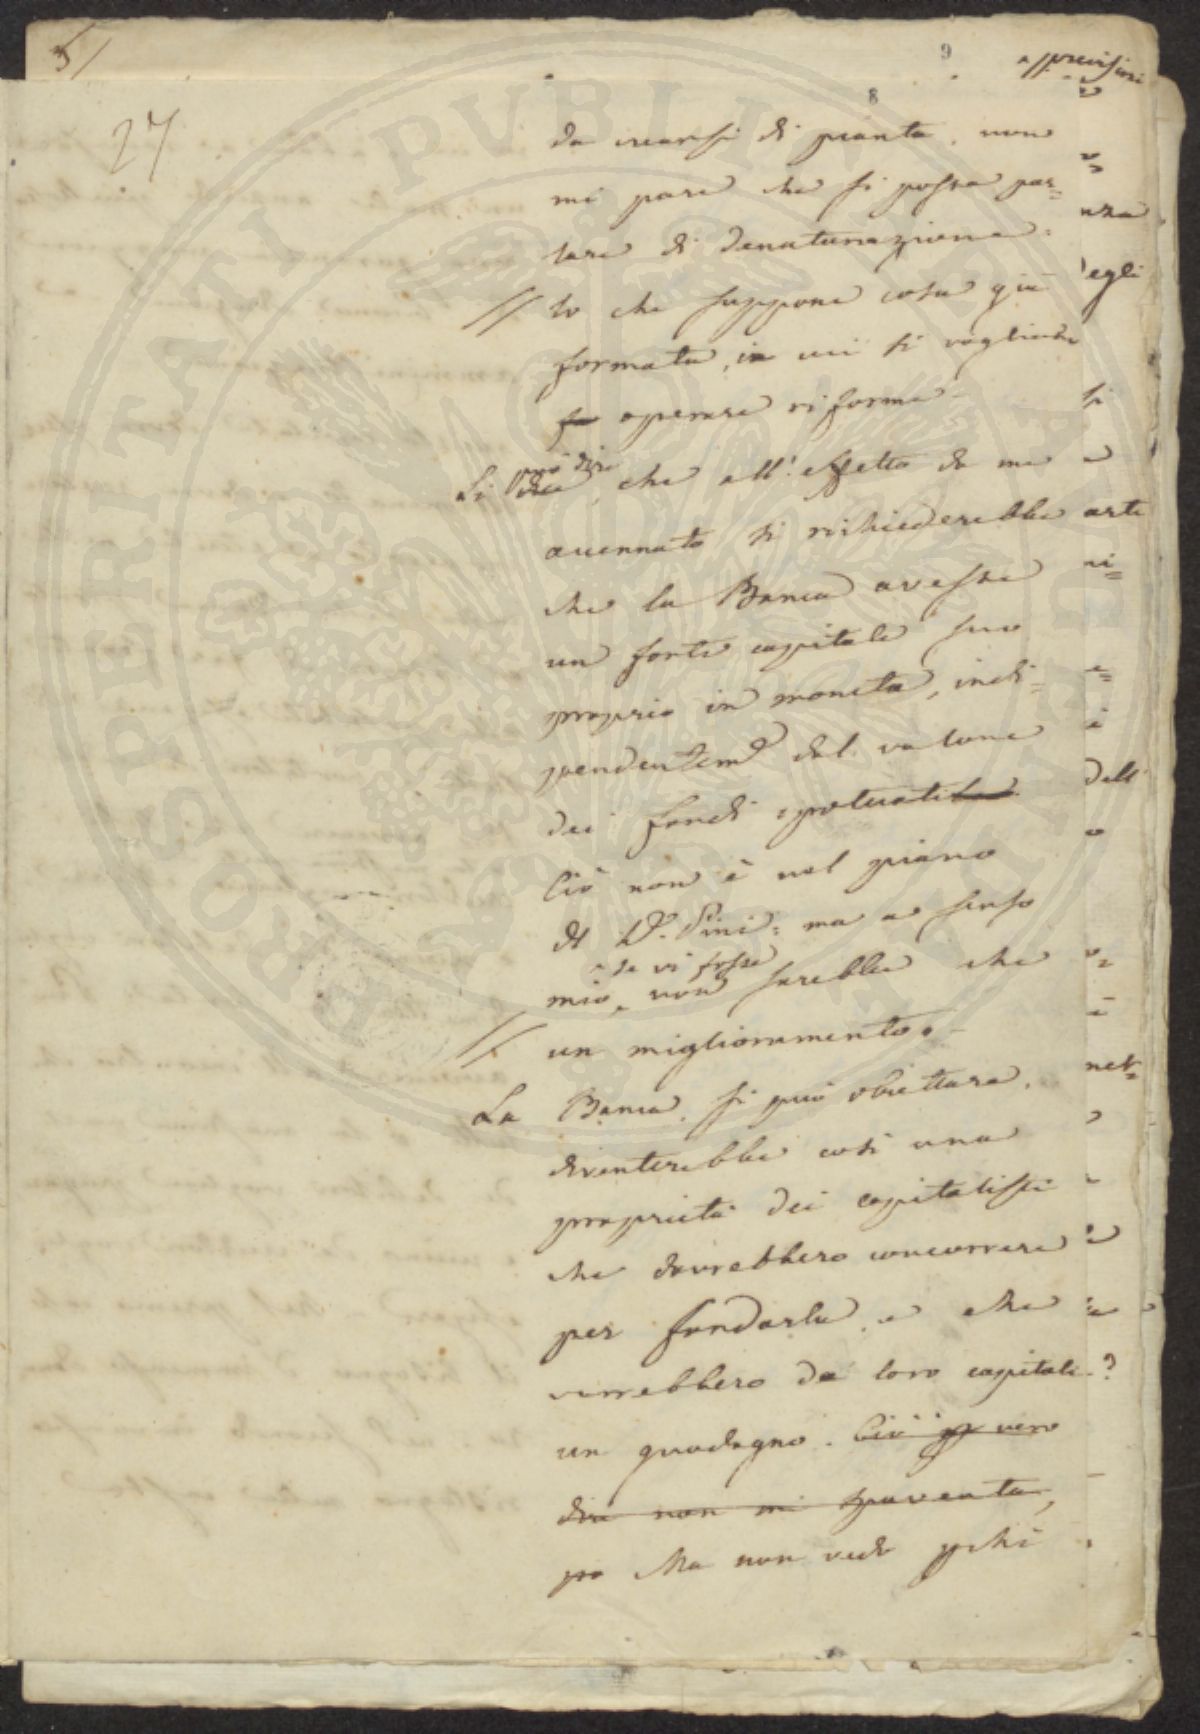 5/
9
8
27
da crearsi di pianta, non
mi pare che si possa par=
lare di denaturazione:
// lo che suppone cosa già
formata, in cui si vogliono
fa operare riforme -
può dire
Si dice, che all'effetto da me
accennato si richiederebbe
che la Banca avesse
un forte capitale suo
proprio in moneta, indi=
pendentem.e dal valore
dei fondi ipotecati
Ciò non è nel piano
del D.r Pini: ma a senso
se vi fosse
mio, non sarebbe che
// un miglioramento. -
La Banca, si può obiettare,
diventerebbe così una
proprietà dei capitalisti
che dovrebbero concorrere
per fondarla, e che
vorrebbero da loro capitali
un guadagno. Ciò vero
dire non mi spaventa,
po Ma non vedo pchè
PROSPERITATI PVBLICAE